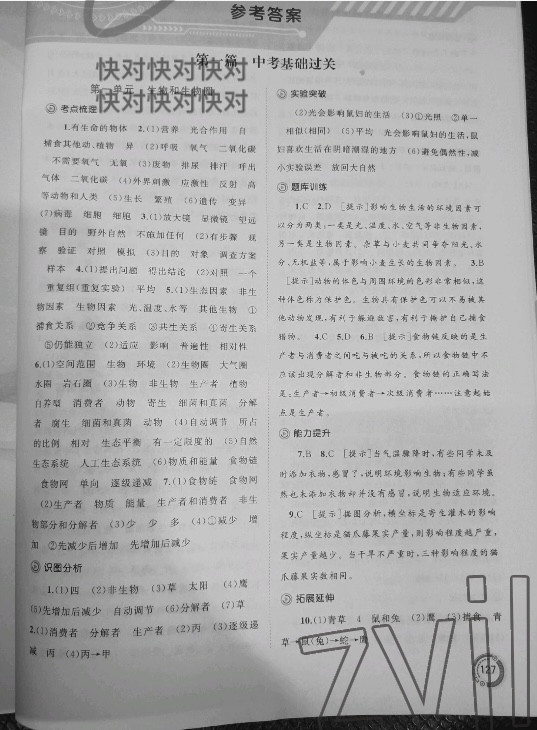 参考答案
第一篇 中考基础过关
第一单元 生物和生物圈
考点梳理
1.有生命的物体 2.(1)营养 光合作用 自
捕食其他动、植物 异 (2)呼吸 氧气 二氧化碳
不需要氧气 无氧 (3)废物 排尿 排汗 呼出
气体 二氧化碳 (4)外界刺激 应激性 反射 高
等动物和人类 (5)生长 繁殖 (6)遗传 变异
(7)病毒 细胞 细胞 3.(1)放大镜 显微镜 望远
镜 目的 野外自然 不施加任何 (2)有步骤 观
察 验证 对照 模拟 (3)目的 对象 调查方案
样本 4.(1)提出问题 得出结论 (2)对照 一个
重复组(重复实验) 平均 5.(1)生态因素 非生
物因素 生物因素 光、温度、水等 其他生物 ①
捕食关系 ②竞争关系 ③共生关系 ④寄生关系
⑤仍能独立 (2)适应 影响 普遍性 相对性
6.(1)空间范围 生物 环境 (2)生物圈 大气圈
水圈 岩石圈 (3)生物 非生物 生产者 植物
自养型 消费者 动物 寄生 细菌和真菌 分解
者 腐生 细菌和真菌 动物 (4)自动调节 所占
的比例 相对 生态平衡 有一定限度的 (5)自然
生态系统 人工生态系统 (6)物质和能量 食物链
食物网 单向 逐级递减 7.(1)食物链 食物网
(2)生产者 物质 能量 生产者和消费者 非生
物部分和分解者 (3)少 少 多 (4)①减少 增
加 ②先减少后增加 先增加后减少
识图分析
1.(1)四 (2)非生物 (3)草 太阳 (4)鹰
(5)先增加后减少 自动调节 (6)分解者 (7)草
2.(1)消费者 分解者 生产者 (2)丙 (3)逐级递
减 丙 (4)丙→甲
实验突破
(2)光会影响鼠妇的生活 (3)①光照 ②单一
相似(相同) (5)平均 光会影响鼠妇的生活,鼠
妇喜欢生活在阴暗潮湿的地方 (6)避免偶然性,减
小实验误差 放回大自然
题库训练
1.C 2.D [提示]影响生物生活的环境因素可
以分为两类:一类是光、温度、水、空气等非生物因素,
另一类是生物因素。杂草与小麦共同争夺阳光、水
分、无机盐等,属于影响小麦生长的生物因素。 3.B
[提示]动物的体色与周围环境的色彩非常相似,这
种体色称为保护色。生物具有保护色可以不易被其
他动物发现,有利于躲避敌害,有利于掩护自己捕食
猎物。 4.C 5.D 6.B [提示]食物链反映的是生
产者与消费者之间吃与被吃的关系,所以食物链中不
应该出现分解者和非生物部分。食物链的正确写法
是:生产者→初级消费者→次级消费者……注意起始
点是生产者。
能力提升
7.B 8.C [提示]当气温骤降时,有些同学未及
时添加衣物,感冒了,说明环境影响生物;有些同学虽
然也未添加衣物却并没有感冒,说明生物适应环境。
9.C [提示]据图分析,横坐标是寄生灌木的影响
程度,纵坐标是猫爪藤果实产量,则影响程度越严重,
果实产量越少。当干旱不严重时,三种影响程度的猫
爪藤果实数相同。
拓展延伸
10.(1)青草 4 鼠和兔 (2)鹰 (3)捕食 青
草→鼠(兔)→蛇→鹰
127
快对快对快对
快对快对快对
zyil